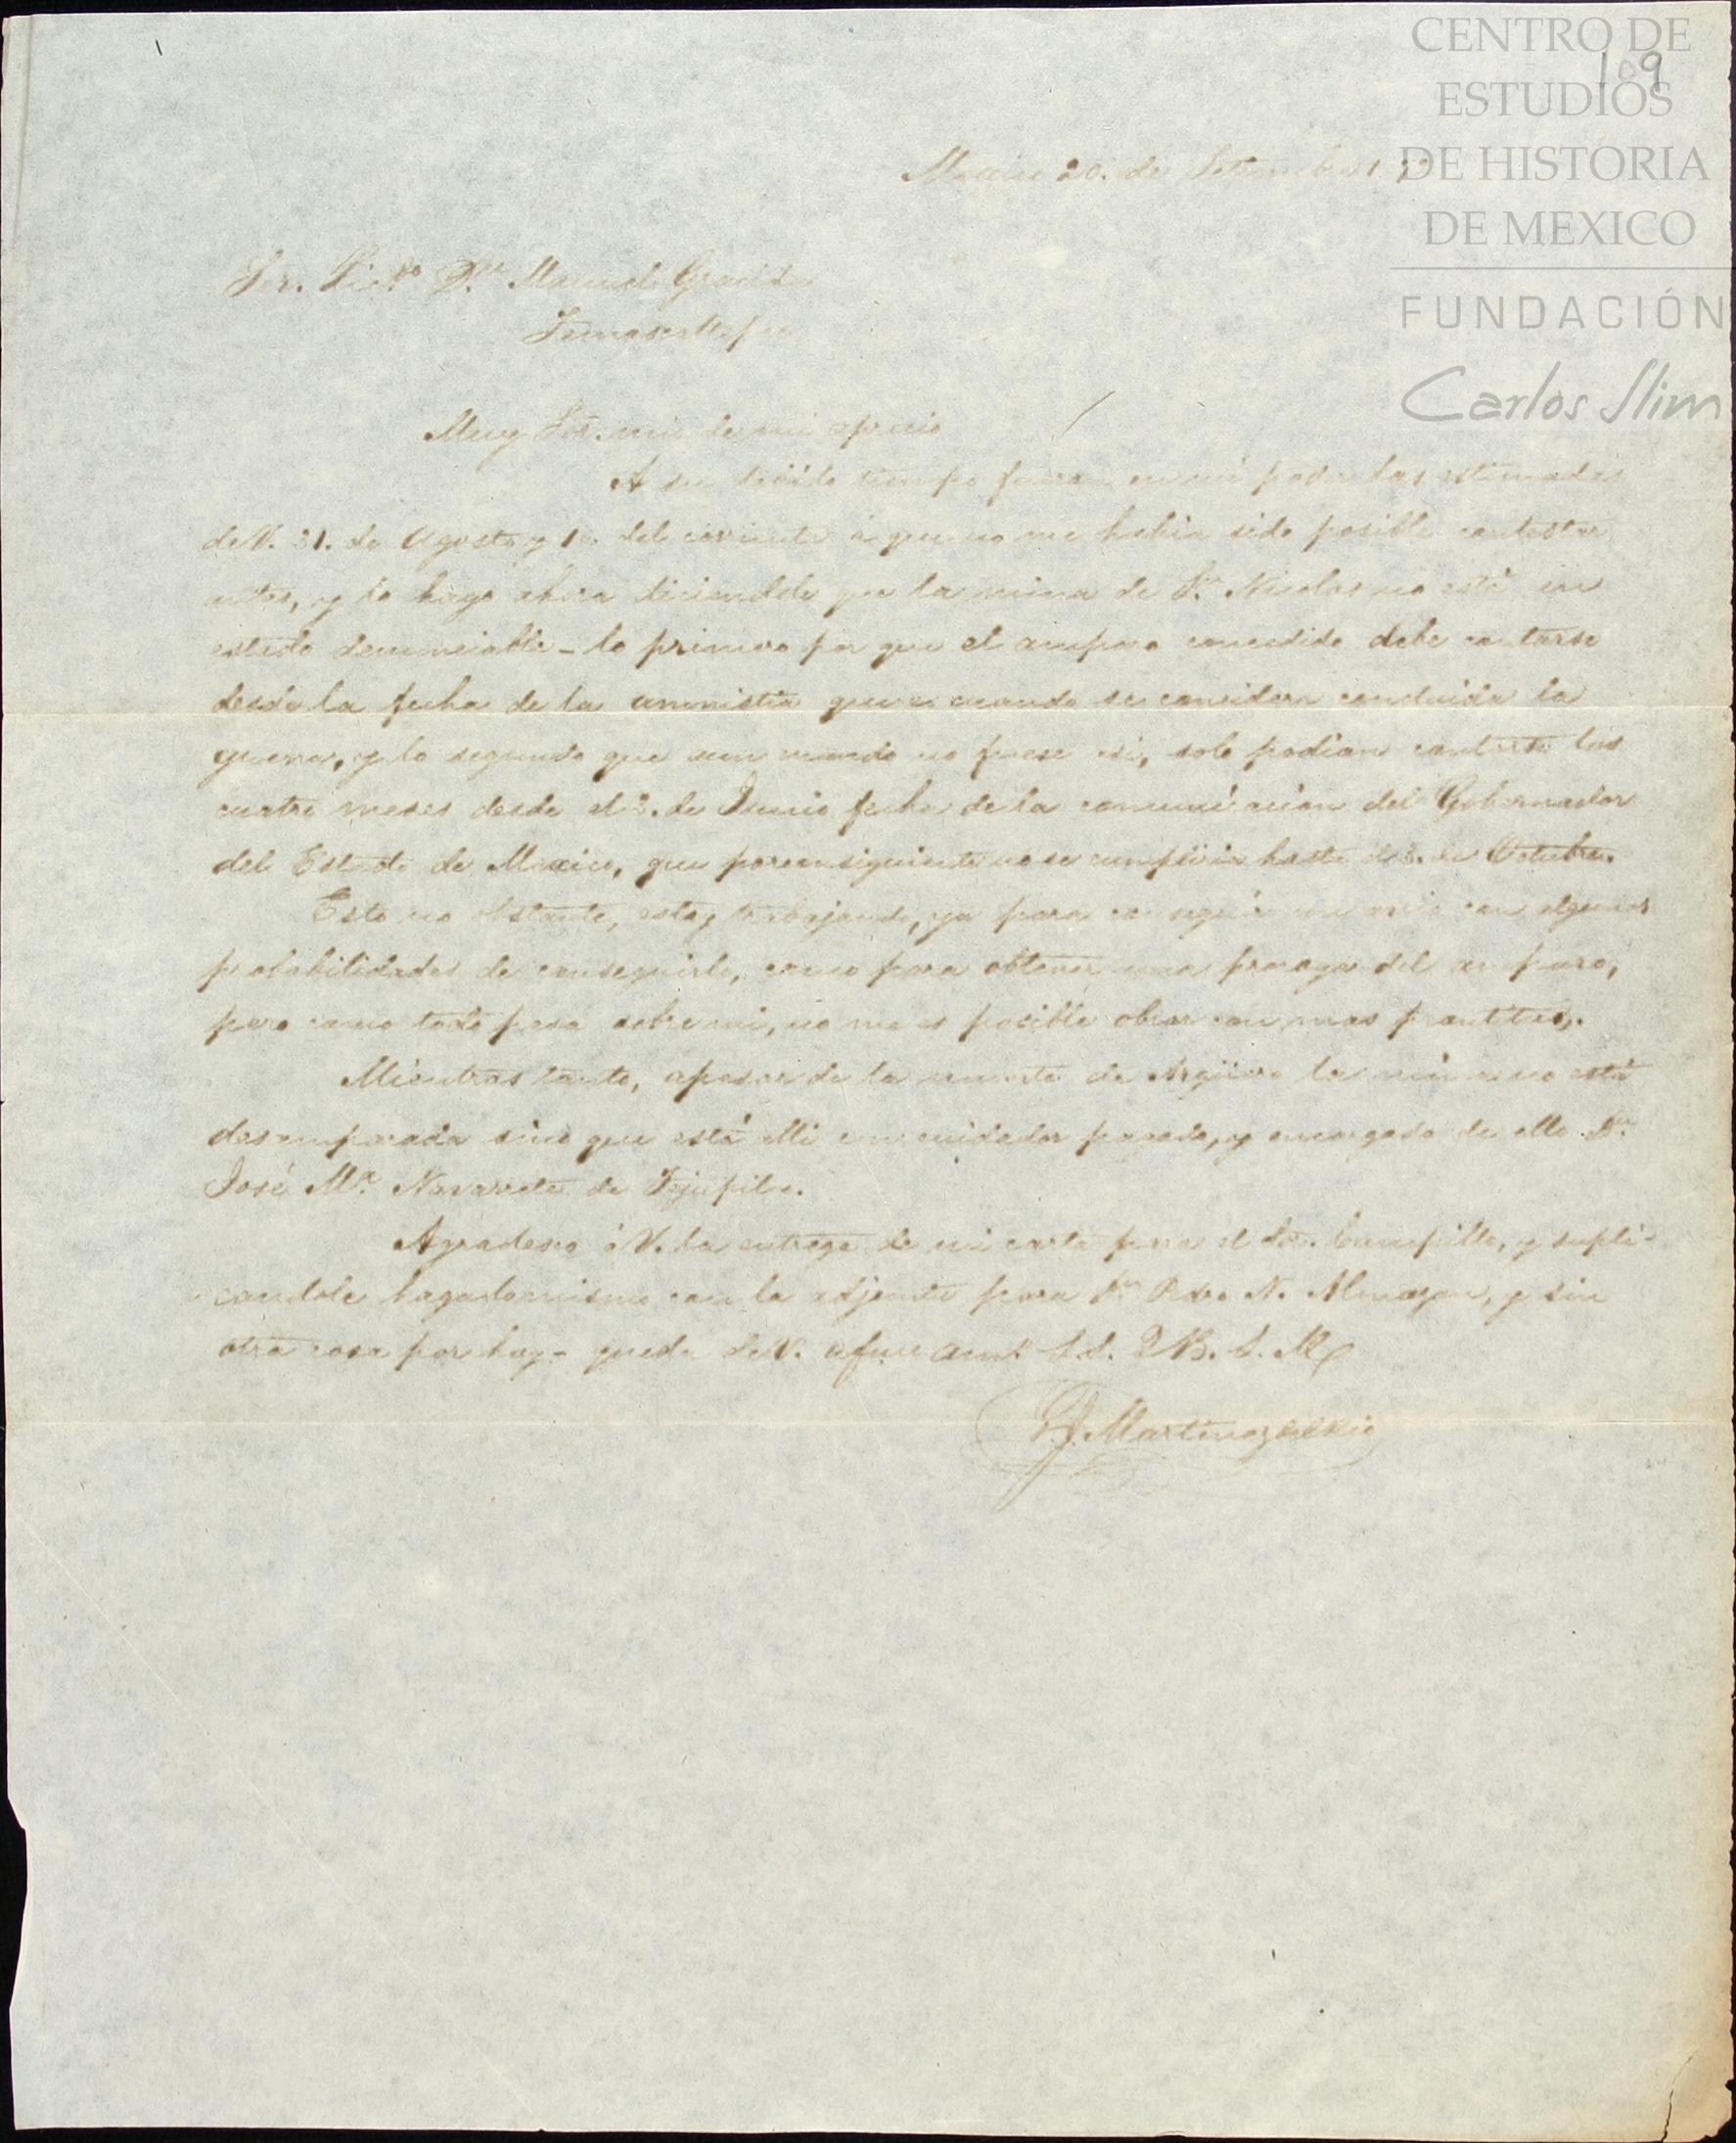 CENTRO DE
109
ESTUDIOS
DE HISTORIA
DE MEXICO
FUNDACIÓN
Carlos Slim
20. de
Sor. Manuel
Muy Sor. mio de mi aprecio
A su debido tiempo en mi poder las estimadas
de V. 31. de Agosto y del corriente á que no me habia sido posible contestar
antes, y lo hago ahora diciendole que la mina de Sn. Nicolas no está en
estado denunciable - lo primero por que el amparo concedido debe contarse
desde la fecha de la amnistia que es cuando se considera concluida la
guerra, y lo segundo que aun cuando no fuese asi, solo podian contarse los
cuatro meses desde el 2. de Junio fecha de la comunicacion del Gobernador
del Estado de Mexico, que por consiguiente no se cumplirin hasta de Octubre.
Esto no obstante, estoy trabajando, ya para conseguir un con algunas
probabilidades de conseguirlo, como para obtener una proroga del amparo,
pero como todo pesa sobre mi, no me es posible obrar con mas prontitud.
Mientras tanto, apesar de la muerte de la mina no está
desamparada sino que está alli un cuidador pagado, y encargado de ella Dn.
José Ma. Navarrete de Tejupilco.
Agradesco á V. la entrega de mi carta para el Sor. y supli-
candole haga lo mismo con la adjunta para Dn. N. Almazan, y sin
otra cosa por hoy queda de V. afmo amo. S. S. Q. B. S. M.